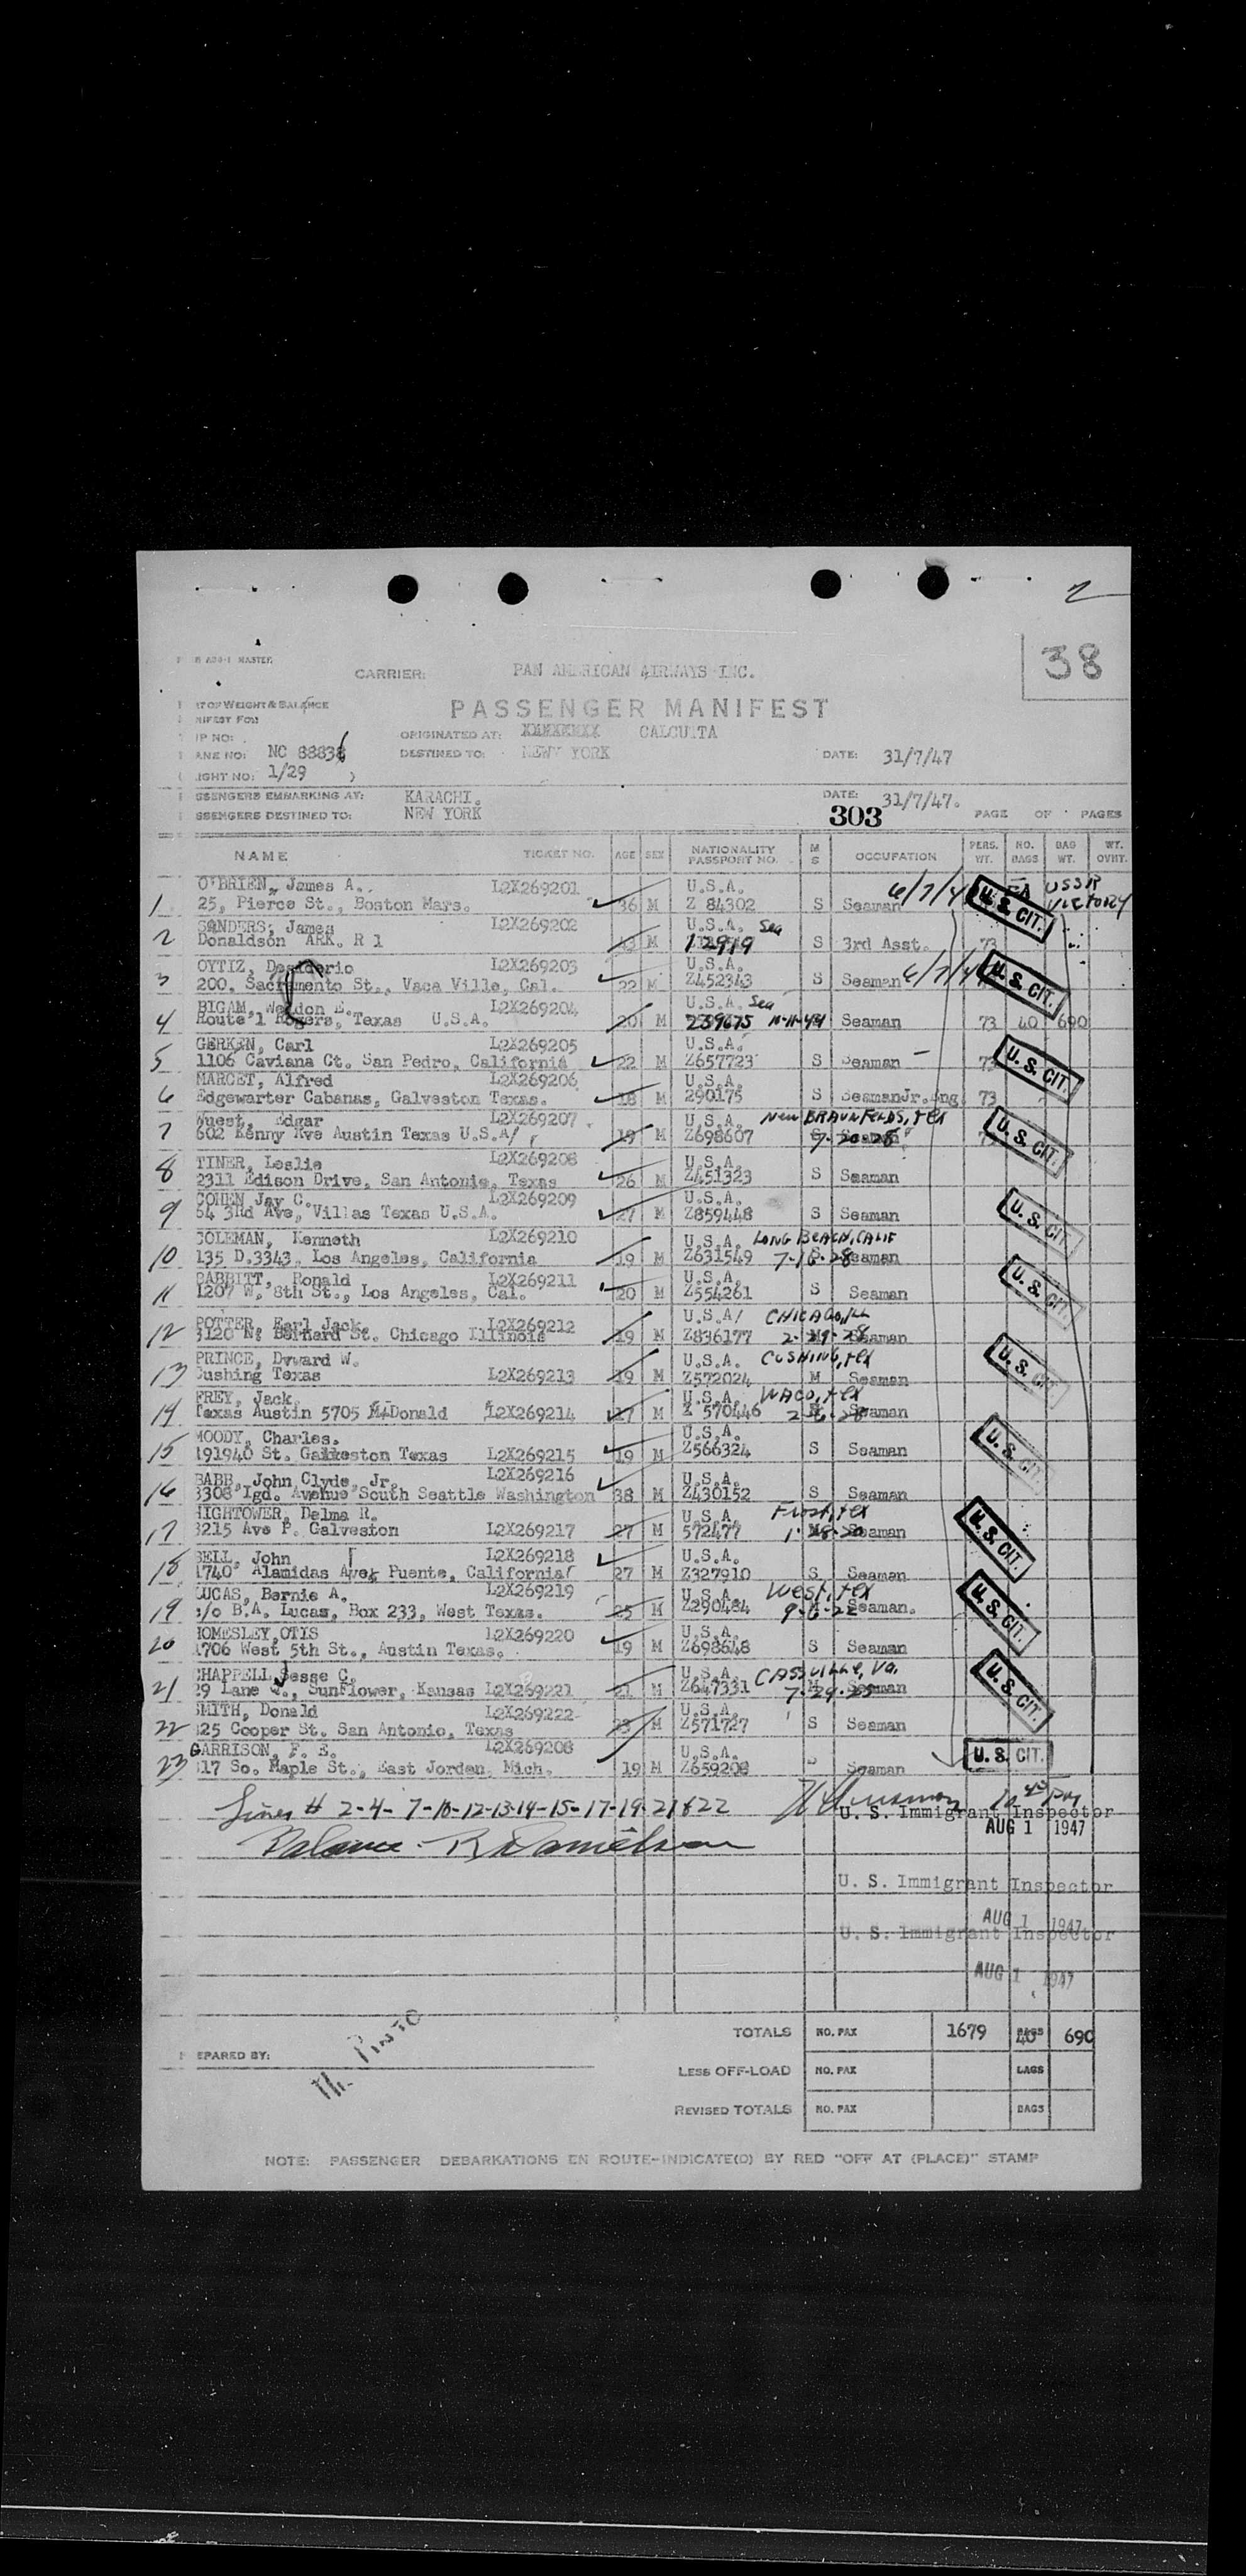 2
38
CARRIER: PAN AMERICAN AIRWAYS INC.
PASSENGER MANIFEST
ORIGINATED AT: XXXXXXXX CALCUTTA
ANE NO: NC 88836 DESTINED TO: NEW YORK DATE: 31/7/47
IGHT NO: 1/29
SSENGERS EMBARKING AT: KARACHI. DATE: 31/7/47.
SSENGERS DESTINED TO: NEW YORK 303 PAGE OF PAGES
NAME TICKET NO. AGE SEX NATIONALITY PASSPORT NO. M S OCCUPATION PERS. WT. NO. BAGS BAG WT. WT. OVHT.
O'BRIEN, James A. L2X269201 U.S.A. USSR
1 25, Pierce St., Boston Mars. 36 M Z 84302 S Seaman VICTORY
SANDERS, James L2X269202 U.S.A. Sea
2 Donaldson ARK. R 1 M S 3rd Asst. 73
OYTIZ, Desiderio L2X269203 U.S.A.
3 200. Sacramento St., Vaca Ville, Cal. 22 M Z452343 S Seaman
BIGAM, Weldon E. L2X269204 U.S.A. Sea
4 Route 1 Rogers, Texas U.S.A. 20 M 239675 10-11-44 Seaman 73 40 690
GERKEN, Carl L2X269205 U.S.A.
5 1106 Caviana Ct. San Pedro, California 22 M Z657723 S Seaman 73
MARCET, Alfred L2X269206 U.S.A.
6 Edgewarter Cabanas, Galveston Texas. 18 M 290175 S SeamanJr.Eng 73
Wuest, Edgar L2X269207 U.S.A. New BRAUNFELDS, tex
7 602 Kenny Ave Austin Texas U.S.A/ 19 M Z698607 7-20-28 Seaman
TINER, Leslie L2X269208 U.S.A.
8 2311 Edison Drive, San Antonio, Texas 26 M Z451323 S Seaman
COHEN Jay C. L2X269209 U.S.A.
9 64 3Rd Ave, Villas Texas U.S.A. 27 M Z859448 S Seaman
COLEMAN, Kenneth L2X269210 U.S.A. LONG BEACH, CALIF
10 135 D.3343, Los Angeles, California 19 M Z631549 7-16-28 Seaman
BABBITT, Ronald L2X269211 U.S.A.
11 1207 W. 8th St., Los Angeles, Cal. 20 M Z554261 S Seaman
POTTER, Earl Jack. L2X269212 U.S.A/ CHICAGO, ILL
12 3120 N. Bernard St. Chicago Illinois 19 M Z836177 Seaman
PRINCE, Dyward W. U.S.A. CUSHING, tex
13 Cushing Texas L2X269213 19 M Z572024 M Seaman
FREY, Jack U.S.A. WACO, tex
14 Texas Austin 5705 McDonald L2X269214 M Z 570446 Seaman
MOODY, Charles. U.S.A.
15 191940 St. Galveston Texas L2X269215 19 M Z566324 S Seaman
BABB, John Clyde, Jr. L2X269216 U.S.A.
16 3308 Igd. Avenue South Seattle Washington 38 M Z430152 S Seaman
HIGHTOWER, Delma R. U.S.A. Frost, tex
17 3215 Ave P. Galveston L2X269217 27 M 572477 Seaman
BELL, John L2X269218 U.S.A.
18 1740 Alamidas Ave, Puente, California 27 M Z327910 S Seaman
LUCAS, Bernie A. L2X269219 U.S.A. West, tex
19 c/o B.A. Lucas, Box 233, West Texas. 25 M Z290484 9-6-22 Seaman.
HOMESLEY, OTIS L2X269220 U.S.A.
20 1706 West 5th St., Austin Texas. 19 M Z698648 S Seaman
CHAPPELL Jesse C. U.S.A. CASSVILLE, Va.
21 29 Lane St., Sunflower, Kansas L2X269221 21 M Z647331 7-29-25 Seaman
SMITH, Donald L2X269222 U.S.A.
22 425 Cooper St. San Antonio, Texas 23 M Z571727 S Seaman
GARRISON, F. E. L2X269208 U.S.A.
23 317 So. Maple St., East Jordan, Mich. 19 M Z659208 Seaman
U. S. CIT.
U. S. CIT.
U. S. CIT.
U. S. CIT.
U. S. CIT.
U. S. CIT.
U. S. CIT.
U. S.
U. S. CIT.
U. S. CIT.
U. S. CIT.
U. S. CIT.
Lines # 2-4-7-10-12-13-14-15-17-19-21&22
U. S. Immigrant Inspector
AUG 1 1947
Balance R Danielson
U. S. Immigrant Inspector
AUG 1 1947
U. S. Immigrant Inspector
AUG 1 1947
TOTALS NO. PAX 1679 BAGS 40 690
EPARED BY:
LESS OFF-LOAD NO. PAX BAGS
REVISED TOTALS NO. PAX BAGS
NOTE: PASSENGER DEBARKATIONS EN ROUTE-INDICATE(D) BY RED "OFF AT (PLACE)" STAMP